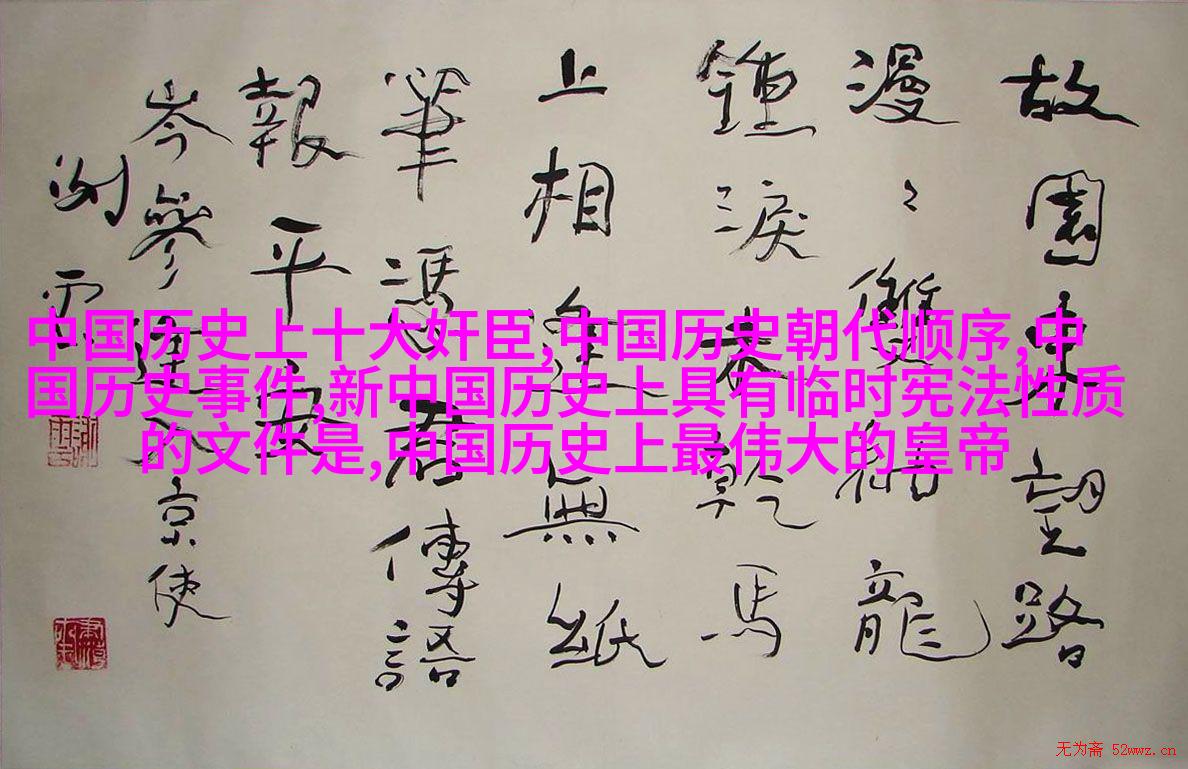 故園東望路
漫々雙袖龍
鍾淚乾馬
上相逢無紙
筆馮君傳語
報平安
岑參逢入京使
中国历史上十大奸臣,中国历史朝代顺序,中
国历史事件,新中国历史上具有临时宪法性质
的文件是,中国历史上最伟大的皇帝
无为斋 52wwz.cn